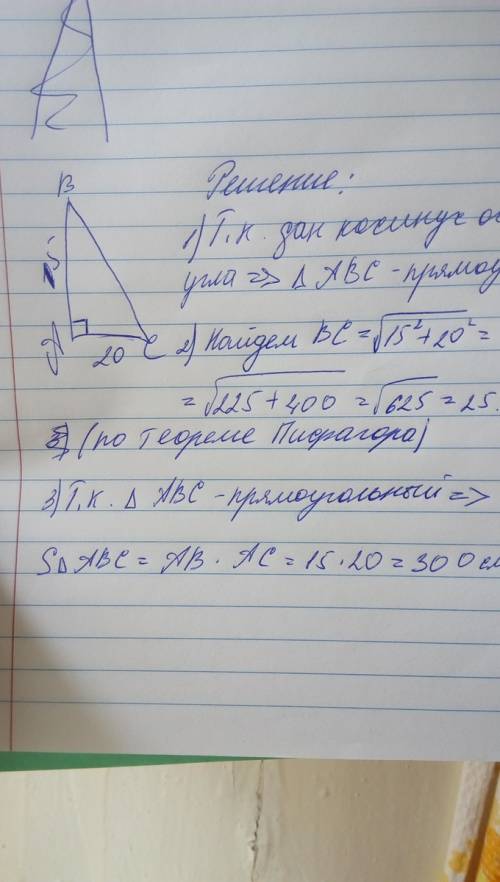 B
15
A
20
C
Решение:
1) Т.к. дан косинус
угла => △ ABC - прямоу
2) Найдем BC = √15² + 20² =
= √225 + 400 = √625 = 25.
(по теореме Пифагора)
3) Т.к. △ ABC - прямоугольный =>
S△ABC = AB · AC = 15 · 20 = 300 см